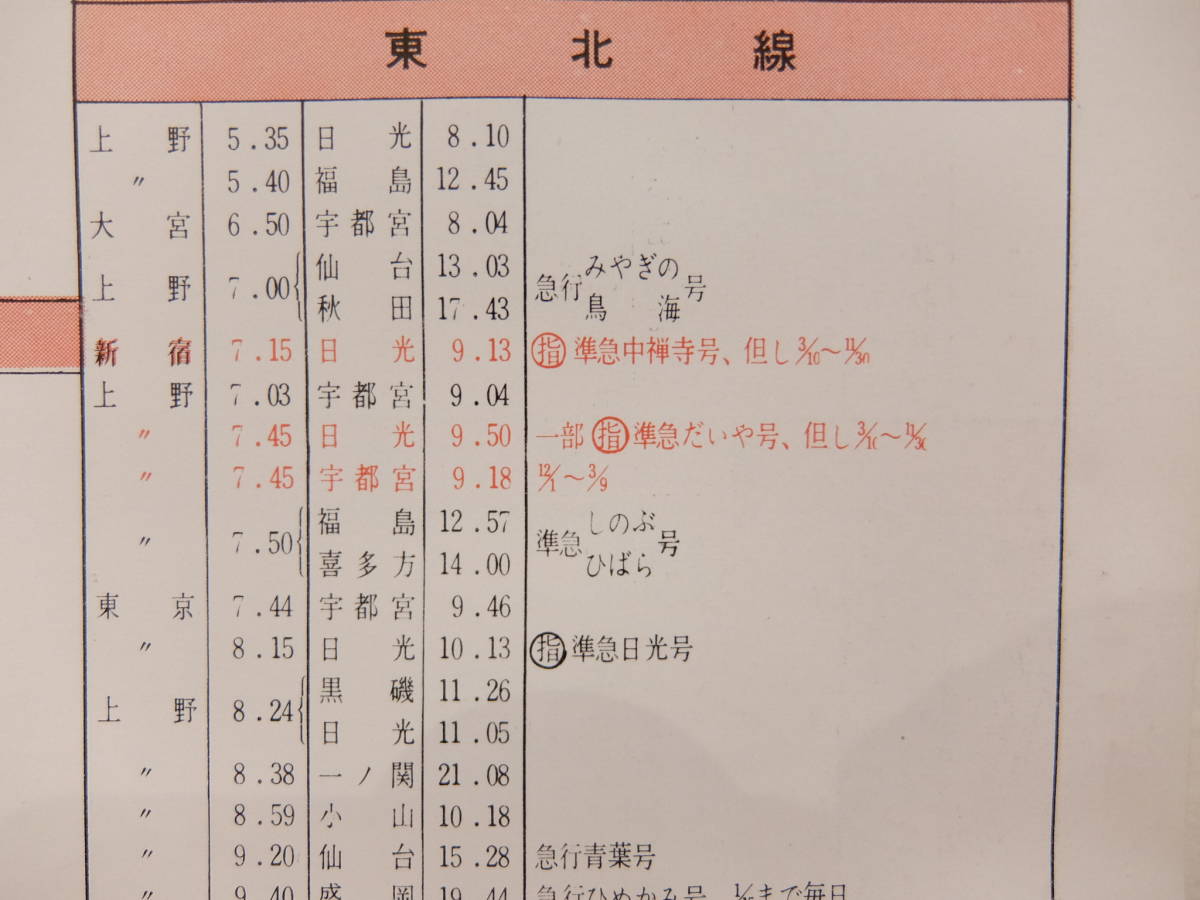 東北線
上野 5.35 日光 8.10
〃 5.40 福島 12.45
大宮 6.50 宇都宮 8.04
上野 7.00 仙台 13.03 急行みやぎの号
秋田 17.43 鳥海
新宿 7.15 日光 9.13 ㊜準急中禅寺号、但し3/10～11/30
上野 7.03 宇都宮 9.04
〃 7.45 日光 9.50 一部 指 準急だいや号、但し3/10～11/30
〃 7.45 宇都宮 9.18 12/1～3/9
〃 7.50 福島 12.57 準急しのぶ号
喜多方 14.00 ひばら
東京 7.44 宇都宮 9.46
〃 8.15 日光 10.13 指 準急日光号
上野 8.24 黒磯 11.26
日光 11.05
〃 8.38 一ノ関 21.08
〃 8.59 小山 10.18
〃 9.20 仙台 15.28 急行青葉号
〃 9.40 盛岡 19.44 急行ひめかみ号、まで毎日